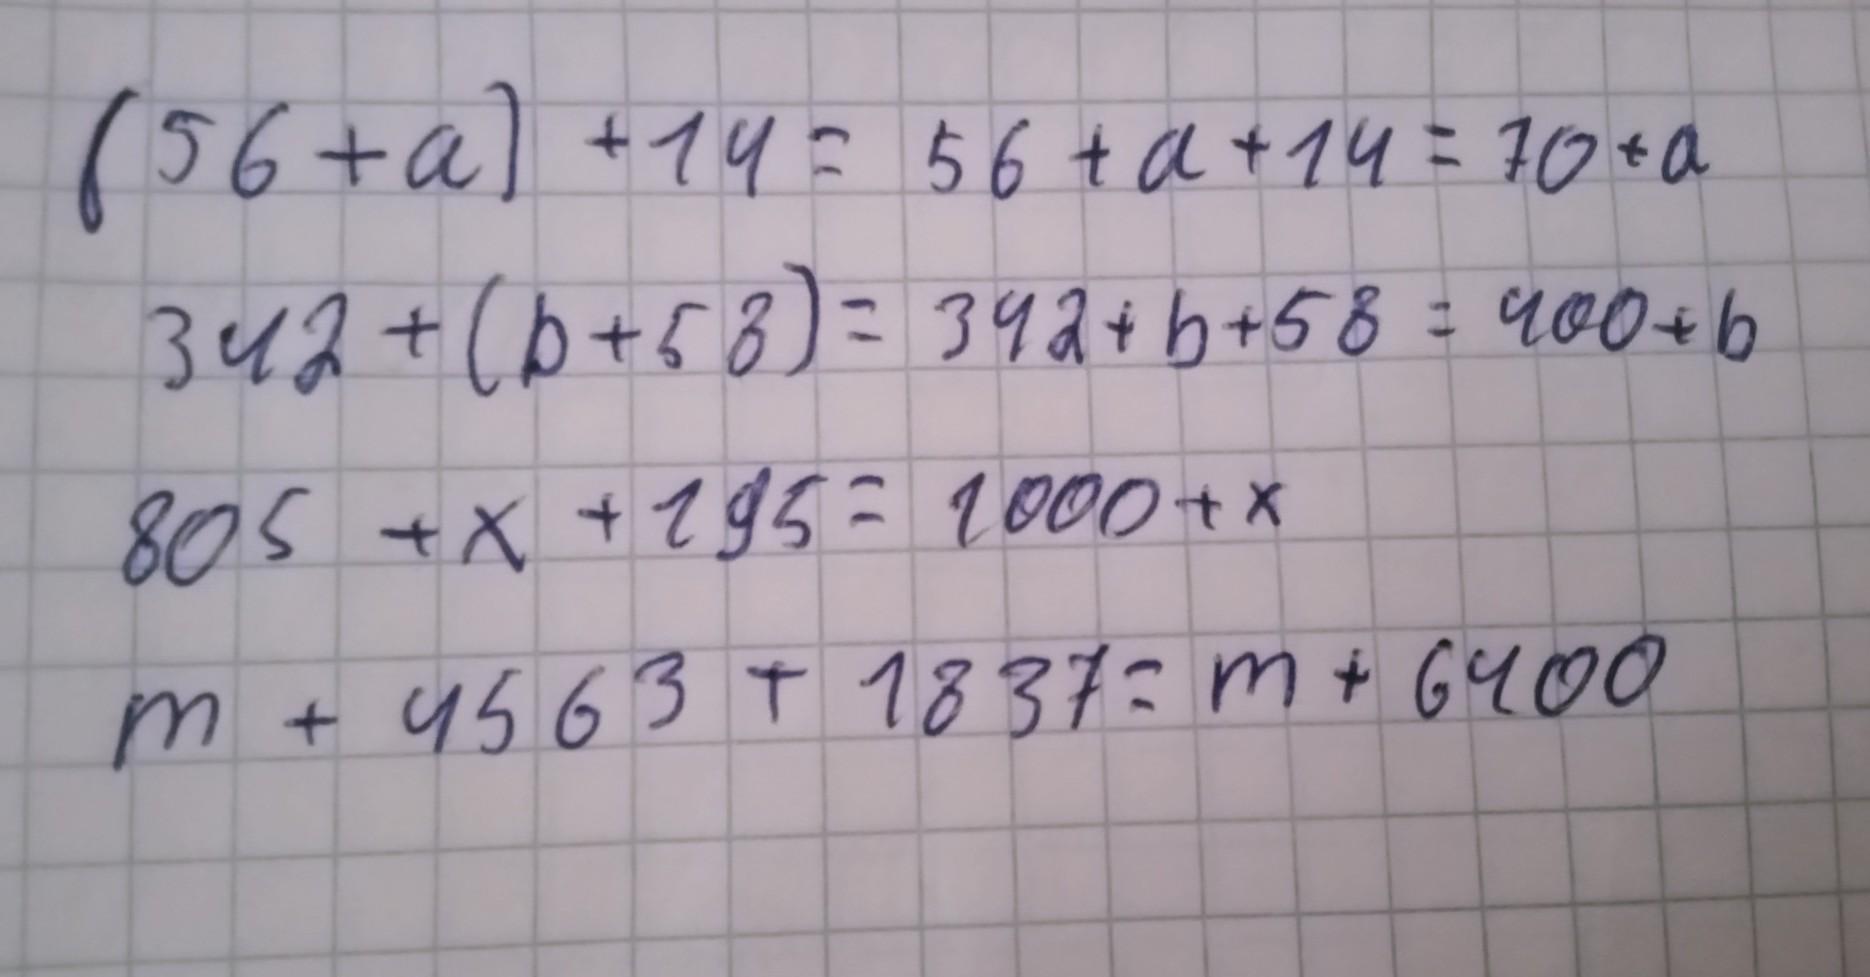 (56+a)+14=56+a+14=70+a
342+(b+58)=342+b+58=400+b
805+x+195=1000+x
m+4563+1837=m+6400